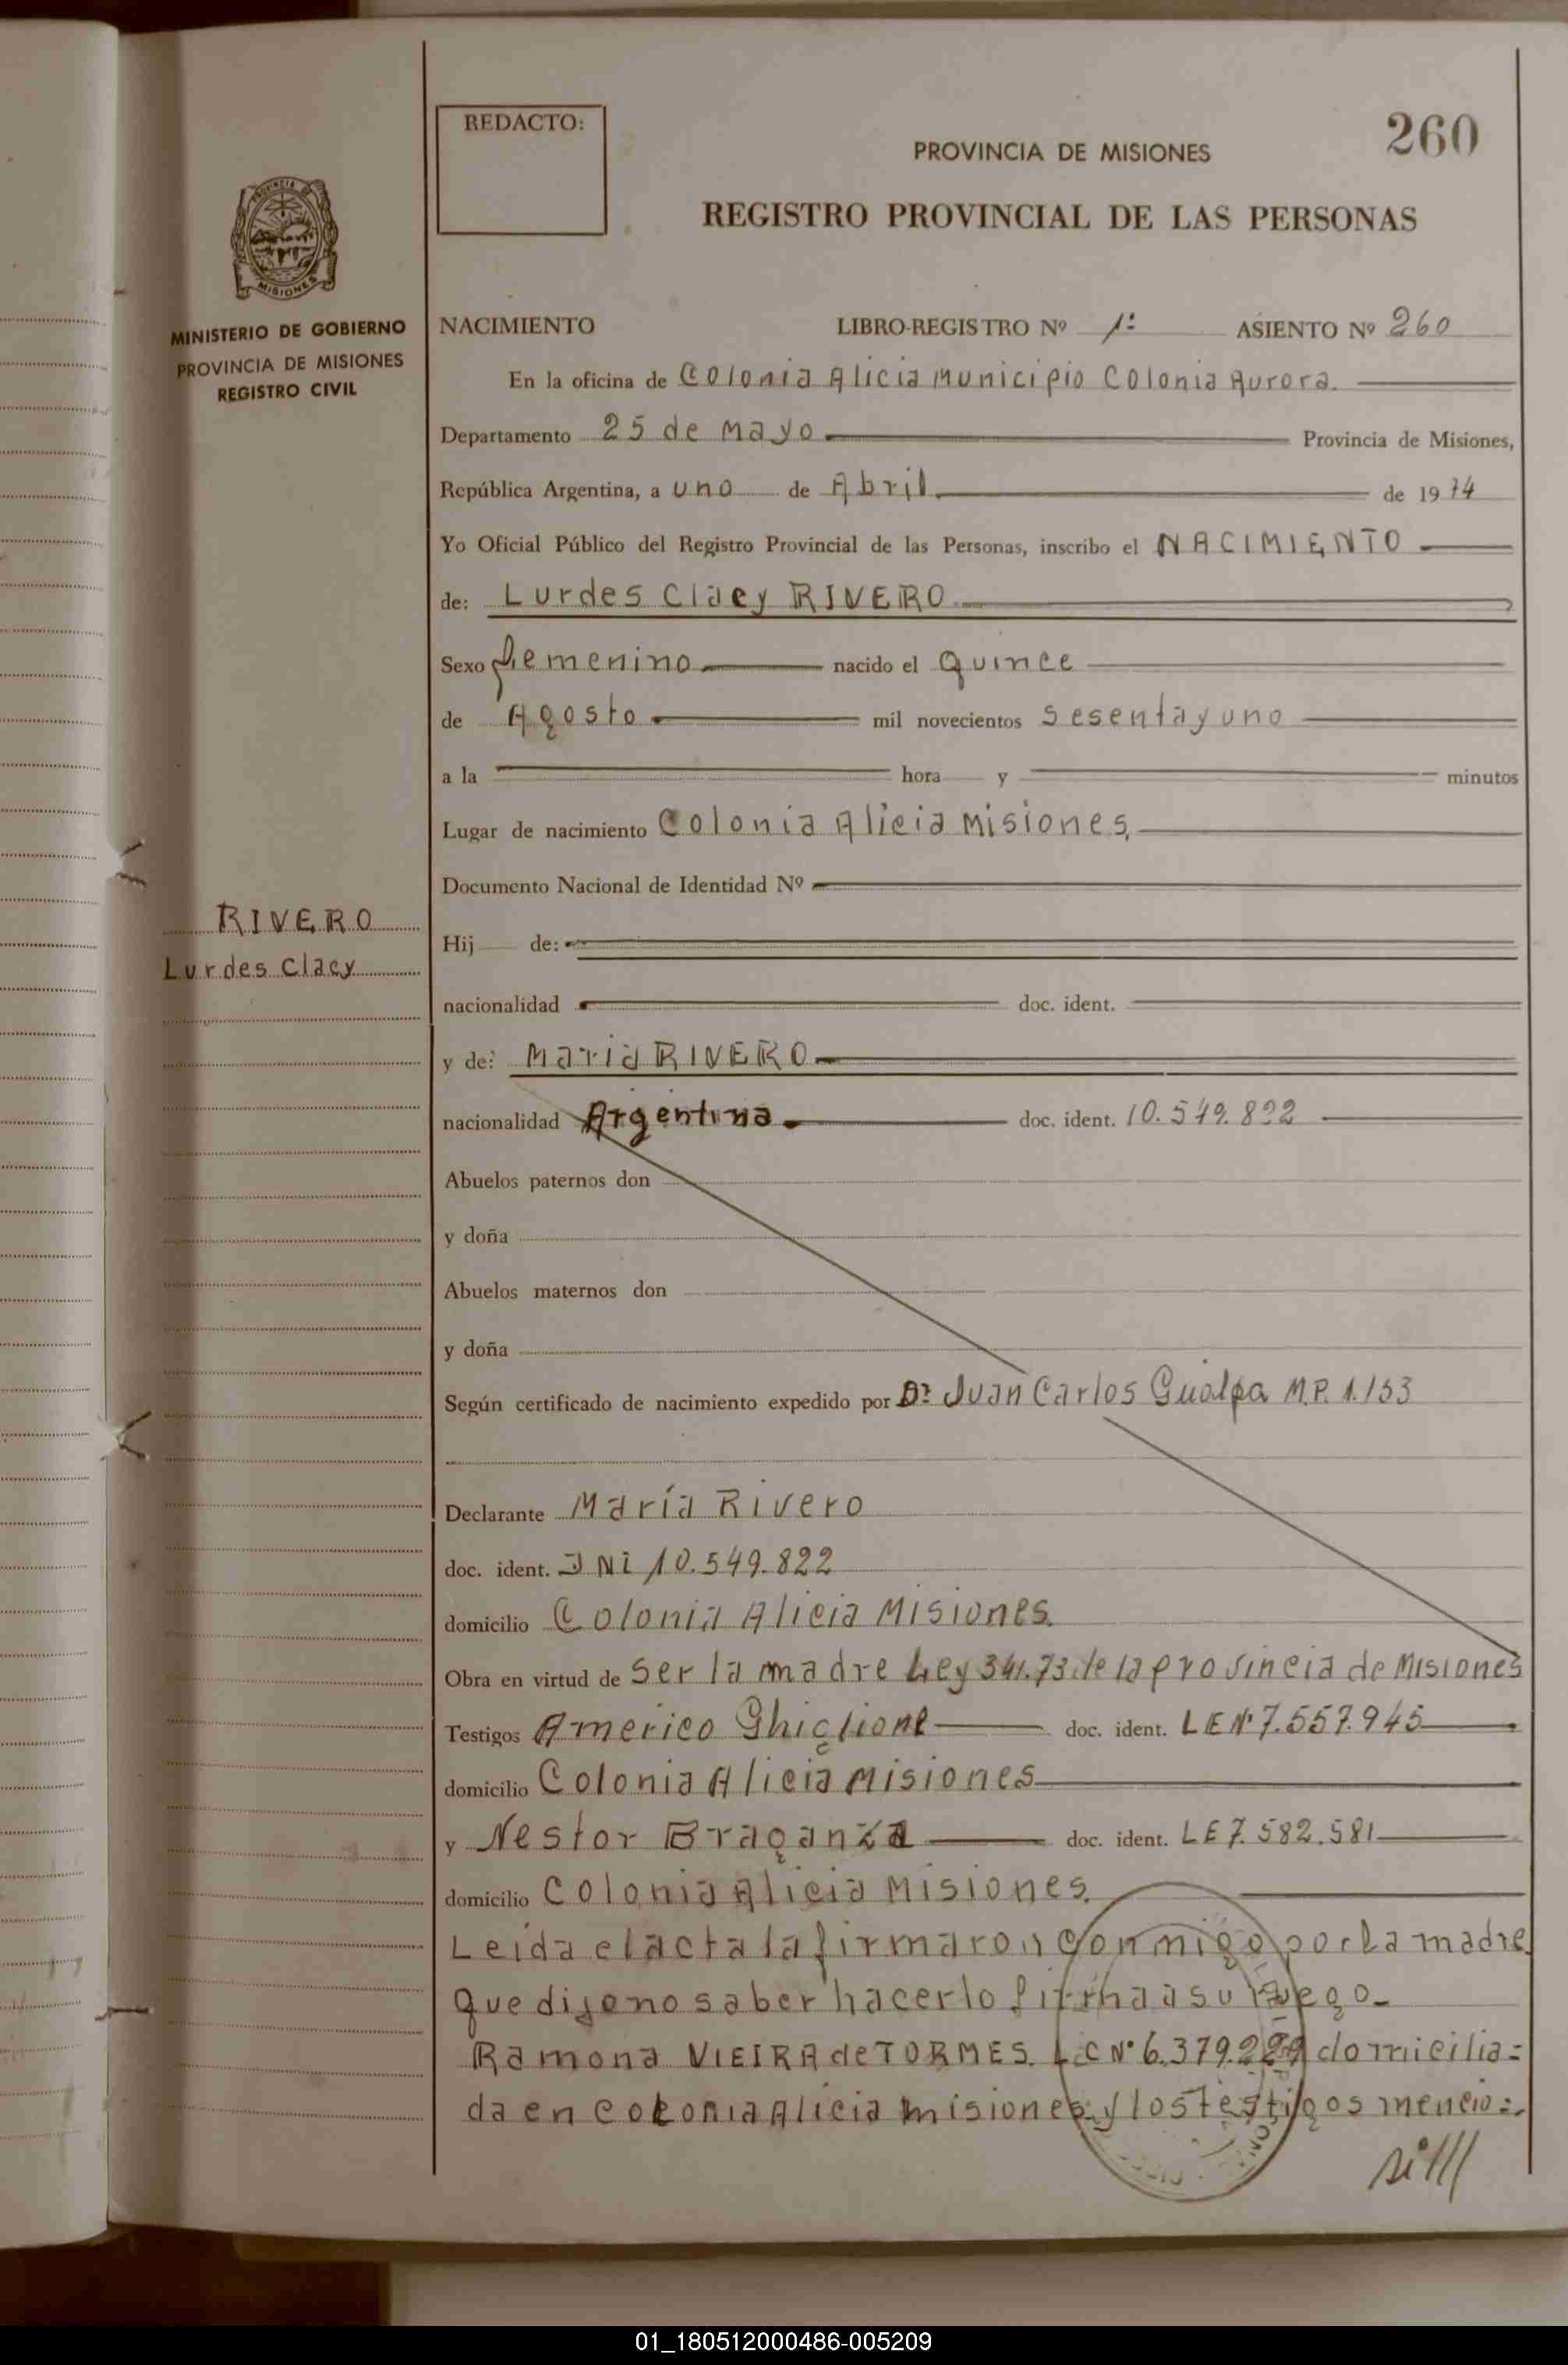 REDACTO:
260
PROVINCIA DE MISIONES
REGISTRO PROVINCIAL DE LAS PERSONAS
PROVINCIA DE
MISIONES
MINISTERIO DE GOBIERNO
PROVINCIA DE MISIONES
REGISTRO CIVIL
NACIMIENTO LIBRO-REGISTRO Nº 1º ASIENTO Nº 260
En la oficina de Colonia Alicia Municipio Colonia Aurora.
Departamento 25 de Mayo Provincia de Misiones,
República Argentina, a uno de Abril de 1974
Yo Oficial Público del Registro Provincial de las Personas, inscribo el NACIMIENTO
de: Lurdes Clacy RIVERO
Sexo femenino nacido el Quince
de Agosto mil novecientos sesenta y uno
a la hora y minutos
Lugar de nacimiento Colonia Alicia Misiones,
Documento Nacional de Identidad Nº
RIVERO
Lurdes Clacy
Hij de:
nacionalidad doc. ident.
y de: Maria RIVERO
nacionalidad Argentina doc. ident. 10.549.822
Abuelos paternos don
y doña
Abuelos maternos don
y doña
Según certificado de nacimiento expedido por Dr Juan Carlos Gualpa M.P. 1.153
Declarante María Rivero
doc. ident. DNI 10.549.822
domicilio Colonia Alicia Misiones.
Obra en virtud de ser la madre Ley 341.73 de la provincia de Misiones
Testigos Americo Ghiglione doc. ident. LE Nº 7.557.945
domicilio Colonia Alicia Misiones
y Nestor Braganza doc. ident. LE 7.582.581
domicilio Colonia Alicia Misiones.
Leida el acta la firmaron conmigo por la madre
que dijo no saber hacerlo firma a su ruego.
Ramona VIEIRA de TORMES. LC Nº 6.379.229 domicilia=
da en colonia Alicia Misiones y los testigos mencio=
01_180512000486-005209